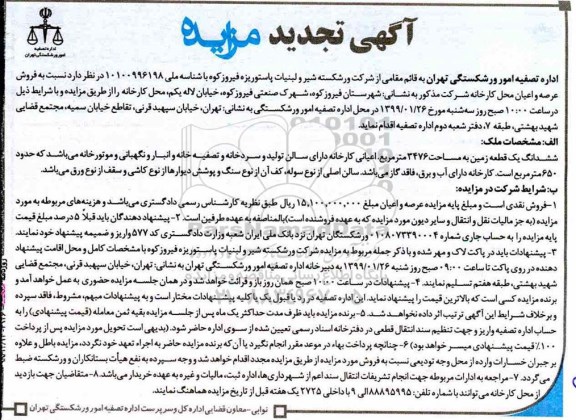 آگهی تجدید مزایده
اداره تصفیه
امور ورشکستگی تهران
اداره تصفیه امور ورشکستگی تهران به قائم مقامی از شرکت ورشکسته شیر و لبنیات پاستوریزه فیروزکوه با شناسه ملی ۱۰۱۰۰۹۹۶۱۹۸ در نظر دارد نسبت به فروش
عرصه و اعیان محل کارخانه شرکت مذکور به نشانی: شهرستان فیروزکوه، شهرک صنعتی فیروزکوه، خیابان لاله یکم، محل کارخانه را از طریق مزایده و با شرایط ذیل
در ساعت ۱۰:۰۰ صبح روز سه‌شنبه مورخ ۱۳۹۹/۰۱/۲۶ در محل اداره تصفیه امور ورشکستگی به نشانی: تهران، خیابان سپهبد قرنی، تقاطع خیابان سمیه، مجتمع قضایی
شهید بهشتی، طبقه ۷، دفتر شعبه دوم اداره تصفیه اقدام نماید.
الف: مشخصات ملک:
ششدانگ یک قطعه زمین به مساحت ۳۴۷۶ مترمربع. اعیانی کارخانه دارای سالن تولید و سردخانه و تصفیه خانه و انبار و نگهبانی و موتورخانه می‌باشد که حدود
۶۵۰ مترمربع است. کارخانه دارای آب و برق، فاقد گاز می‌باشد. سالن اصلی از نوع سوله، کف آن از نوع سنگ و پوشش دیوارها از نوع کاشی و سقف از نوع ورق می‌باشد.
ب: شرایط شرکت در مزایده:
۱-فروش نقدی است و مبلغ پایه مزایده عرصه و اعیان مبلغ ۱۵,۱۰۰,۰۰۰,۰۰۰ ریال طبق نظریه کارشناس رسمی دادگستری می‌باشد و هزینه‌های مربوطه به مورد
مزایده (به جز مالیات نقل و انتقال و سایر دیون مورد مزایده که به عهده فروشنده است) بالمناصفه به عهده طرفین است. ۲- پیشنهاددهندگان باید قبلا ۵ درصد مبلغ قیمت
پایه مزایده را به حساب جاری شماره ورشکستگان تهران نزد بانک ملی ایران شعبه وزارت دادگستری کد ۵۷۷ واریز و ضمیمه پیشنهاد خود نمایند.
۳- پیشنهادات باید در پاکت لاک و مهر شده و با ذکر جمله مربوط به مزایده شرکت ورشکسته شیر و لبنیات پاستوریزه فیروزکوه با مشخصات کامل و محل اقامت پیشنهاد
دهنده در روی پاکت تا ساعت ۰۹:۰۰ صبح روز شنبه ۱۳۹۹/۰۱/۲۶ به دبیرخانه اداره تصفیه امور ورشکستگی تهران به نشانی: تهران، خیابان سپهبد قرنی، مجتمع قضایی
شهید بهشتی، طبقه هفتم تسلیم نمایند. ۴- پیشنهادات در ساعت ۱۰:۰۰ صبح همان روز باز و قرائت خواهد شد و در همان جلسه مزایده حضوری به عمل خواهد آمد و
برنده مزایده کسی است که بالاترین قیمت را پیشنهاد نماید. این اداره تصفیه در رد یا قبول یک یا کلیه پیشنهادات مختار است و به پیشنهادات مبهم، مشروط، فاقد سپرده
و برخلاف شرایط این آگهی ترتیب اثر داده نخواهد شد. ۵- برنده مزایده باید ظرف مدت حداکثر یک ماه پس از جلسه مزایده بقیه ثمن معامله (قیمت پیشنهادی) را به
حساب اداره تصفیه واریز و جهت تنظیم سند انتقال قطعی در دفترخانه اسناد رسمی تعیین شده از سوی اداره حاضر شود. (بدیهی است تحویل مورد مزایده پس از پرداخت
۱۰۰٪ قیمت پیشنهادی میسر خواهد بود) ۶- چنانچه پرداخت بهاء در موعد مقرر انجام نگیرد یا آن که برنده مزایده حاضر به اجراء تعهد خود نگردد، مزایده باطل و علاوه
بر جبران خسارات وارده از محل وجه تودیعی نسبت به فروش مورد مزایده از طریق مزایده مجدد اقدام خواهد شد و وجه سپرده به نفع هیأت بستانکاران و ورشکسته ضبط
می‌گردد. ۷- مراجعه به ادارات مربوطه جهت انجام تشریفات انتقال سند اعم از شهرداری‌ها، اداره ثبت، مالیات و غیره به عهده خریدار می‌باشد. ۸- متقاضیان جهت بازدید
از محل کارخانه می‌توانند با شماره تلفن: ۸۸۸۹۵۹۹۵ الی ۹ با داخلی ۲۷۲۵ یک هفته قبل از تاریخ مزایده هماهنگ نمایند.
نوایی - معاون قضایی اداره کل و سرپرست اداره تصفیه امور ورشکستگی تهران